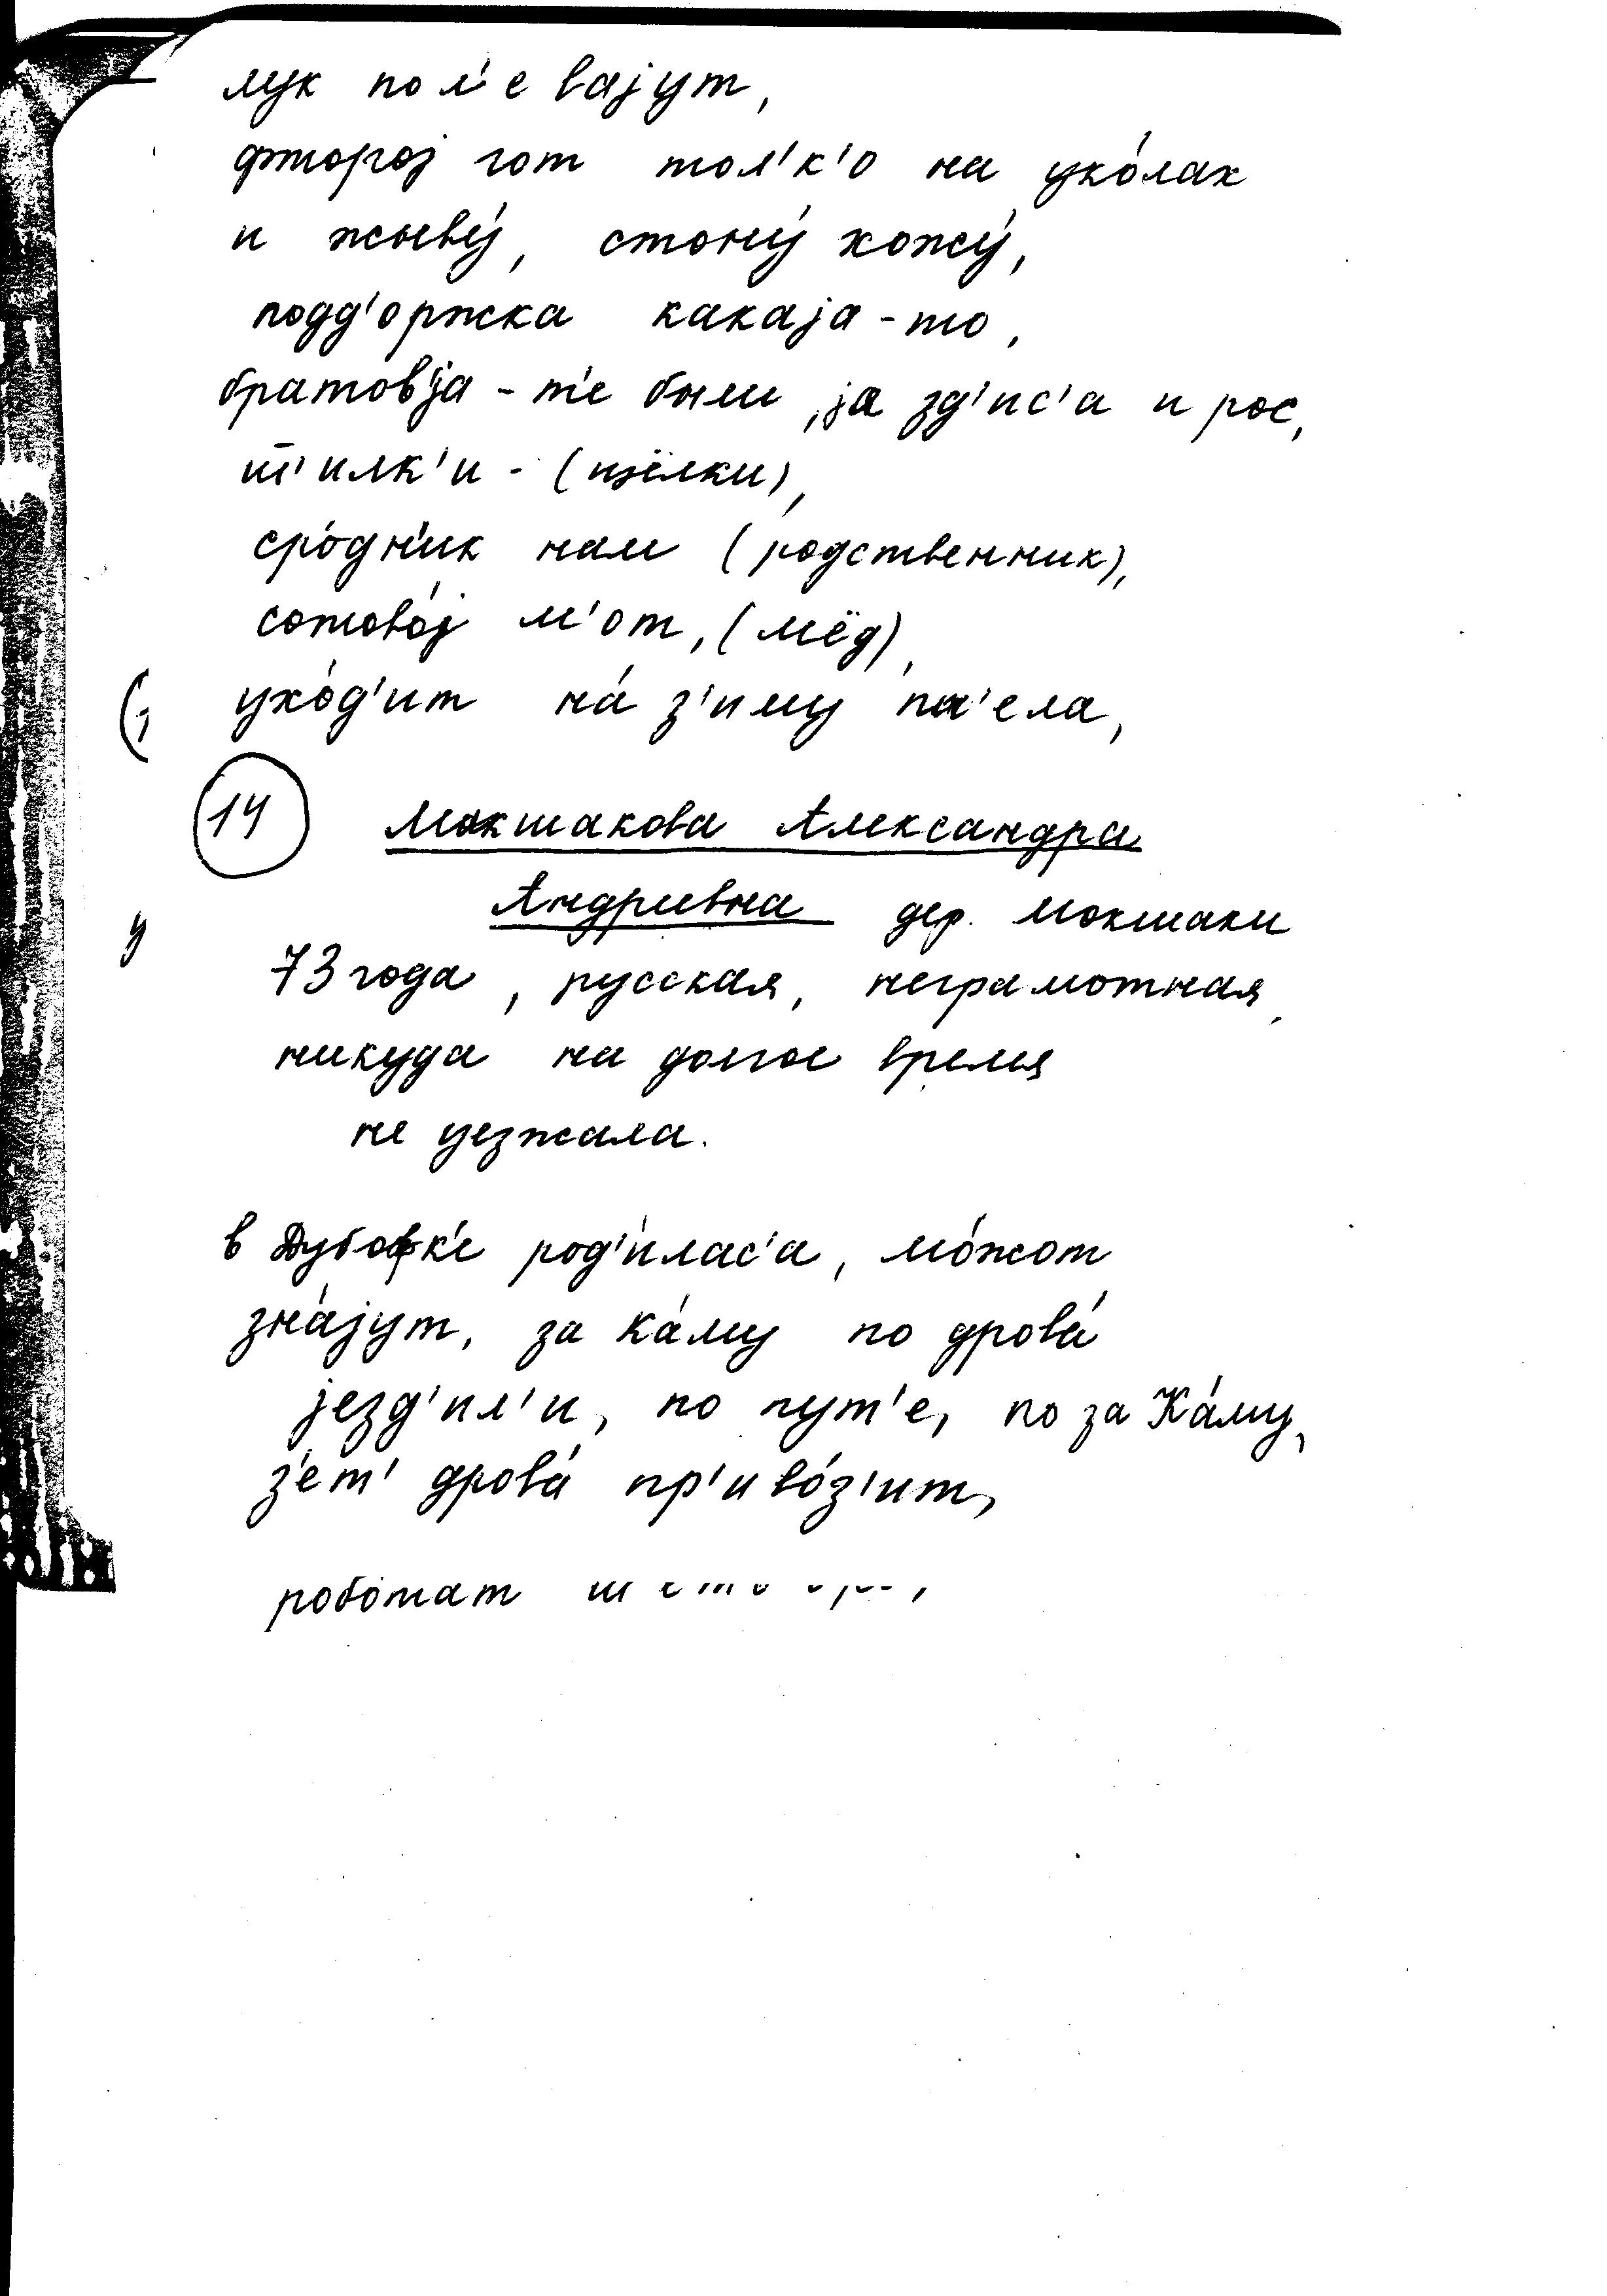 лук пол'евајут,
фторој гот тол'к'о на уко́лах
и жыву́, стону́ хожу́,
подд'оржка какаја-то,
братов'ја-т'е были, ја зд'ис'а и рос,
сро́дн'ик нам (родственник),
сотово́ј м'от, (мёд),
ухо́д'ит на́ з'иму
14 Мокшакова Александра
Андреевна дер. Мокшаки
73 года, русская, неграмотная,
никуда на долгое время
не уезжала.
в Дубофк'е род'и́лас'а, мо́жот
зна́јут, за Ка́му по дрова́
језд'ил'и, по пут'е, по за Ка́му,
з'ет' дрова́ пр'иво́з'ит,
робо́тат